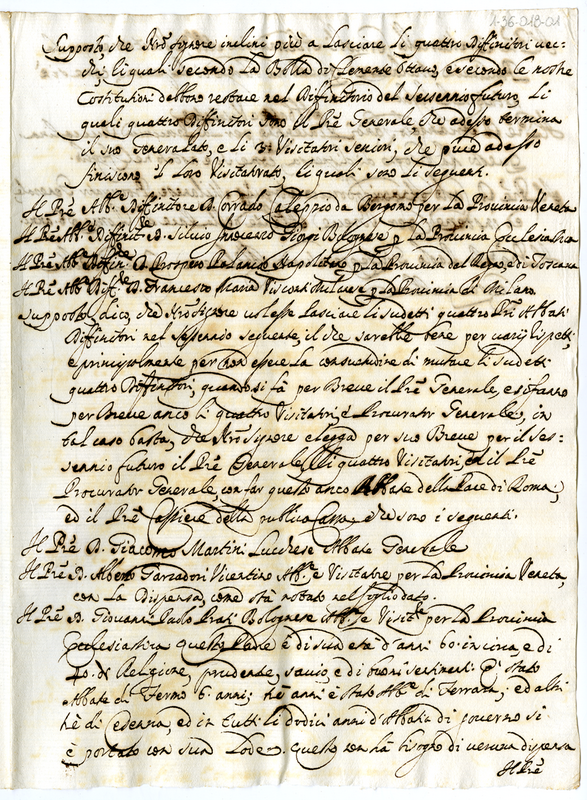 1-36-018-01
Supposto, che Nro Signore inclini più a lasciare li quattro Diffinitori vec:
chi, li quali secondo la Bolla di Clemente Ottavo, e secondo le nostre
Costitutioni debbono restare nel Diffinitorio del Seisennio futuro, li
quali quattro Diffinitori sono Il Prẽ Generale, che adesso termina
il suo Generalato, e li 3 Visitatori Seniori, che pure adesso
finiscono il loro Visitatorato, li quali sono li seguenti.
Il Prẽ Abbe Diffinitore D. Corrado Caleppio da Bergomo per la Provincia Veneta
Il Prẽ Abbe Diffinitre D. Silvio Innocenzo Giorgi Bolognese p la Provincia Ecclesiastica
Il Prẽ Abbe Diffinre D. Prospero Napolitano p la Provincia del Regno, e di Toscana
Il Prẽ Abbe Diffre D. Francesco Maria Visconti Milanese p la Provincia di Milano.
Supposto, dico, che Nro Signore volesse lasciare li sudetti quattro Prĩ Abbati
Diffinitori nel Sessennio seguente, il che sarebbe bene per varij rispetti,
e principalmente per non essere la consuetudine di mutare li sudetti
quattro Diffinitori, quando si fà per Breve il Prẽ Generale, e si fanno
per Breve anco li quattro Visitatori, e Procurator Generale, in
tal caso basta, che Nro Signore elegga per suo Breve per il Ses:
sennio futuro il Prẽ Generale, li quattro Visitatori, et il Prẽ
Procurator Generale, con far questo anco Abbate della Pace di Roma;
ed il Prẽ Cassiere della publica Cassa, che sono i seguenti.
Il Prẽ D. Giacomo Martini Lucchese Abbate Generale
Il Prẽ D. Alberto Garzadori Vicentino Abbe e Visitatre per la Provincia Veneta,
con la Dispensa, come stà notato nel foglio dato.
Il Prẽ D. Giovanni Paolo Prati Bolognese Abbe e Visitre per la Provincia
Ecclesiastica questo Padre è di sua età d'anni 60. in circa, e di
40. di Religione, prudente, savio, e di buoni sentimenti. È stato
Abbate di Fermo 6. anni; trè anni è stato Abbe di Ferrara, ed altri
trè di Cesena, ed in tutti li dodici anni d'Abbatia di governo si
è portato con sua Lode. questo non hà bisogno di veruna dispensa
Il Prẽ